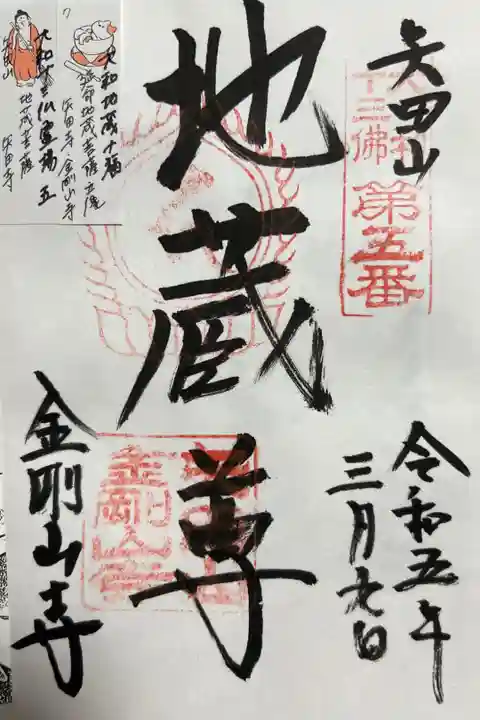 矢田山
大和
十三佛
第五番
地蔵尊
令和五年
三月九日
金剛山寺
金剛山寺
大和地蔵十福
矢田寺・金剛山寺
大和十三仏霊場 五
地蔵菩薩
矢田寺
矢田山